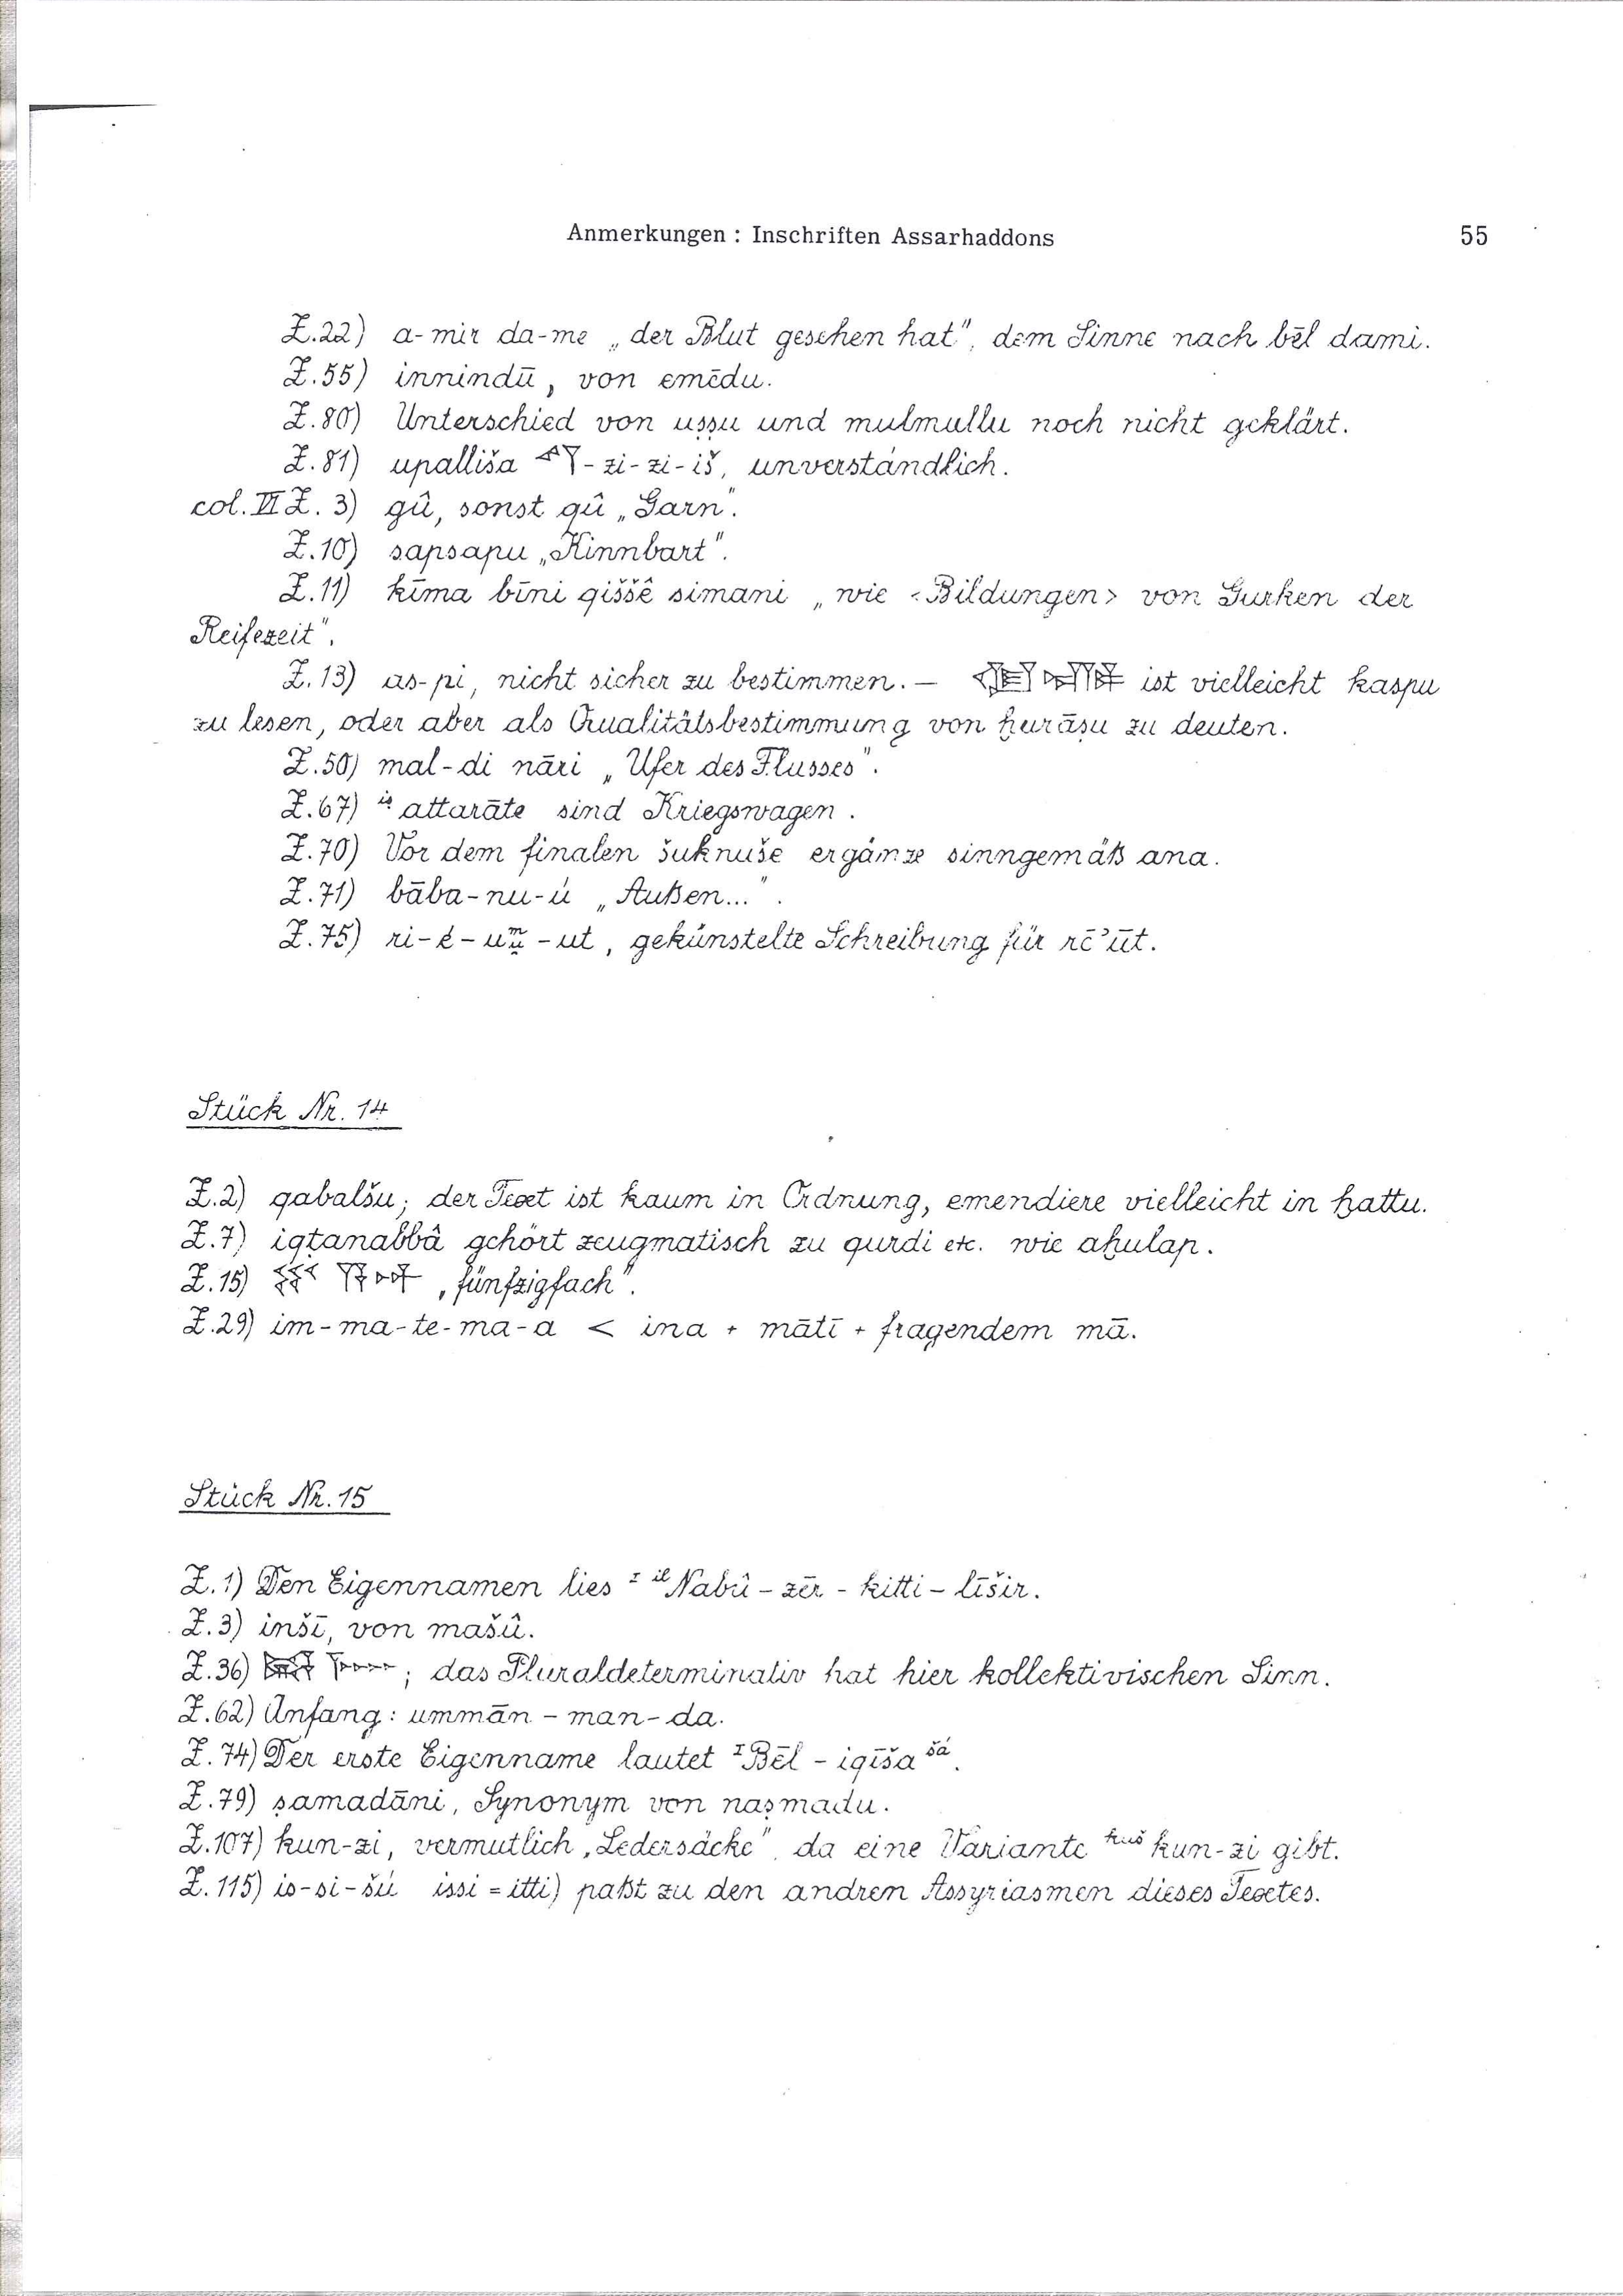 Anmerkungen : Inschriften Assarhaddons 55
Z.22) a-mir da-me „der Blut gesehen hat", dem Sinne nach bēl dami.
Z.55) innindū, von emēdu.
Z.80) Unterschied von uṣṣu und mulmullu noch nicht geklärt.
Z.81) upalliša -zi-zi-iš, unverständlich.
col. VI Z. 3) gû, sonst qû „Garn".
Z.10) sapsapu „Kinnbart".
Z.11) kīma bīni qiššê simani „wie <Bildungen> von Gurken der
Reifezeit".
Z.13) as-pi, nicht sicher zu bestimmen. — ist vielleicht kaspu
zu lesen, oder aber als Qualitätsbestimmung von ḫurāṣu zu deuten.
Z.50) mal-di nāri „Ufer des Flusses".
Z.67) iṣ attarāte sind Kriegswagen.
Z.70) Vor dem finalen šuknuše ergänze sinngemäß ana.
Z.71) bāba-nu-ú „Außen..." .
Z.75) ri-é-um-ut, gekünstelte Schreibung für rē'ūt.
Stück Nr. 14
Z.2) qabalšu; der Text ist kaum in Ordnung, emendiere vielleicht in ḫattu.
Z.7) iqtanabbâ gehört zeugmatisch zu qurdi etc. wie aḫulap.
Z.15) „fünfzigfach".
Z.29) im-ma-te-ma-a < ina + mātī + fragendem mā.
Stück Nr. 15
Z.1) Den Eigennamen lies I il Nabû-zēr-kitti-līšir.
Z.3) inšī, von mašû.
Z.36) ; das Pluraldeterminativ hat hier kollektivischen Sinn.
Z.62) Anfang: ummān-man-da.
Z.74) Der erste Eigenname lautet I Bēl-iqīša šá.
Z.79) ṣamadāni, Synonym von naṣmadu.
Z.107) kun-zi, vermutlich „Ledersäcke", da eine Variante kuš kun-zi gibt.
Z.115) is-si-šú issi = itti) paßt zu den andren Assyriasmen dieses Textes.